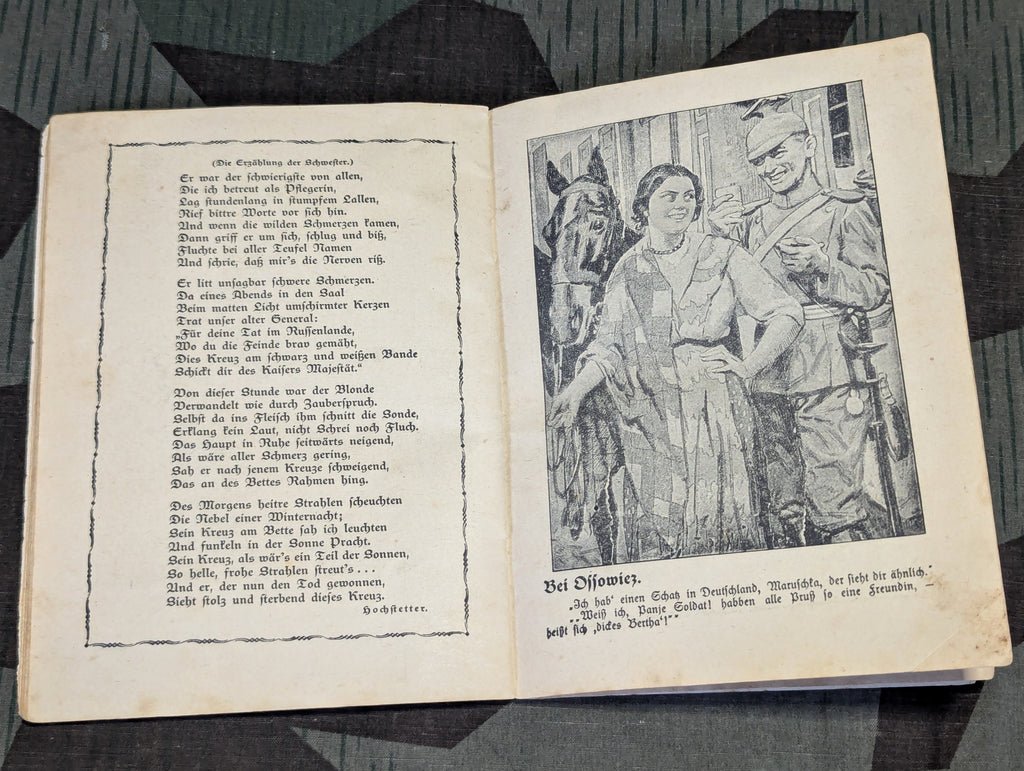 (Die Erzählung der Schwester.)
Er war der schwierigste von allen,
Die ich betreut als Pflegerin,
Lag stundenlang in stumpfem Lallen,
Rief bittre Worte vor sich hin.
Und wenn die wilden Schmerzen kamen,
Dann griff er um sich, schlug und biß,
Fluchte bei aller Teufel Namen
Und schrie, daß mir's die Nerven riß.
Er litt unsagbar schwere Schmerzen.
Da eines Abends in den Saal
Beim matten Licht umschirmter Kerzen
Trat unser alter General:
„Für deine Tat im Russenlande,
Wo du die Feinde brav gemäht,
Dies Kreuz am schwarz und weißen Bande
Schickt dir des Kaisers Majestät.“
Von dieser Stunde war der Blonde
Verwandelt wie durch Zauberspruch.
Selbst da ins Fleisch ihm schnitt die Sonde,
Erklang kein Laut, nicht Schrei noch Fluch.
Das Haupt in Ruhe seitwärts neigend,
Als wäre aller Schmerz gering,
Sah er nach jenem Kreuze schweigend,
Das an des Bettes Rahmen hing.
Des Morgens heitre Strahlen scheuchten
Die Nebel einer Winternacht;
Sein Kreuz am Bette sah ich leuchten
Und funkeln in der Sonne Pracht.
Sein Kreuz, als wär's ein Teil der Sonnen,
So helle, frohe Strahlen streut's . . .
Und er, der nun den Tod gewonnen,
Sieht stolz und sterbend dieses Kreuz.
Hochstetter.
Bei Ossowiez.
„Ich hab' einen Schatz in Deutschland, Maruschka, der sieht dir ähnlich.“
„Weiß ich, Panje Soldat! habben alle Pruß so eine Freundin, —
heißt sich ‚dickes Bertha‘!“